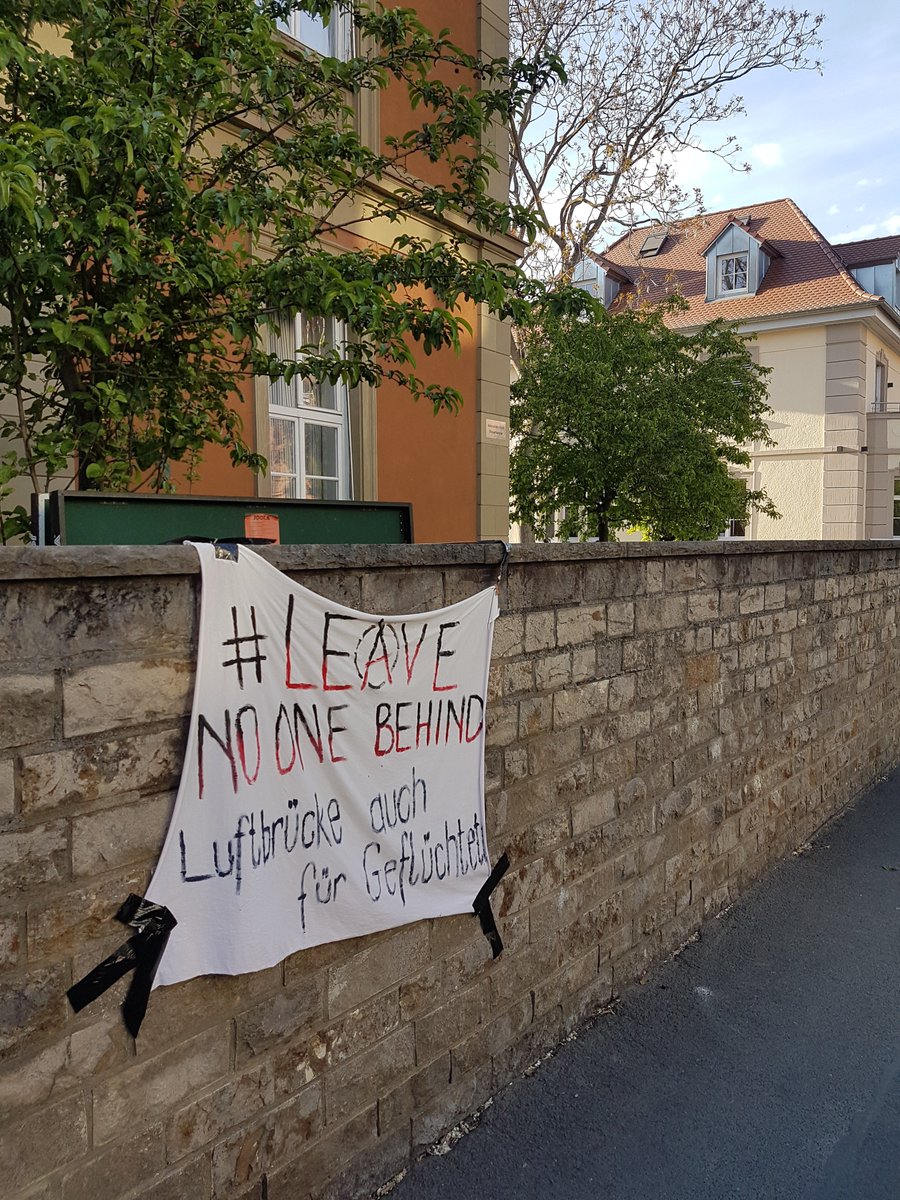 #LEAVE
NO ONE BEHIND
Luftbrücke auch
für Geflüchtete
JOOLA